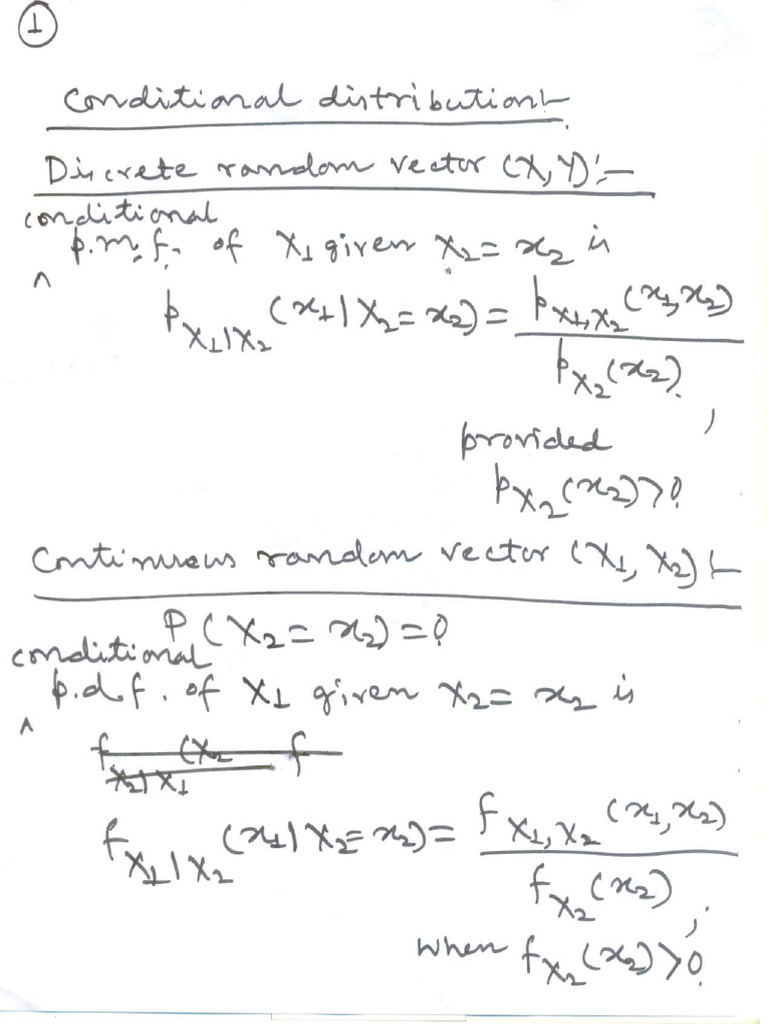 ①
Conditional distribution:-
Discrete random vector (X, Y):-
conditional
^ p.m.f. of X₁ given X₂ = x₂ is
p_{X₁|X₂} (x₁ | X₂ = x₂) = p_{X₁,X₂} (x₁, x₂) / p_{X₂} (x₂),
provided
p_{X₂} (x₂) > 0
Continuous random vector (X₁, X₂):-
P (X₂ = x₂) = 0
conditional
^ p.d.f. of X₁ given X₂ = x₂ is
f_{X₂|X₁} (X₂ f
f_{X₁|X₂} (x₁ | X₂ = x₂) = f_{X₁,X₂} (x₁, x₂) / f_{X₂} (x₂),
when f_{X₂} (x₂) > 0